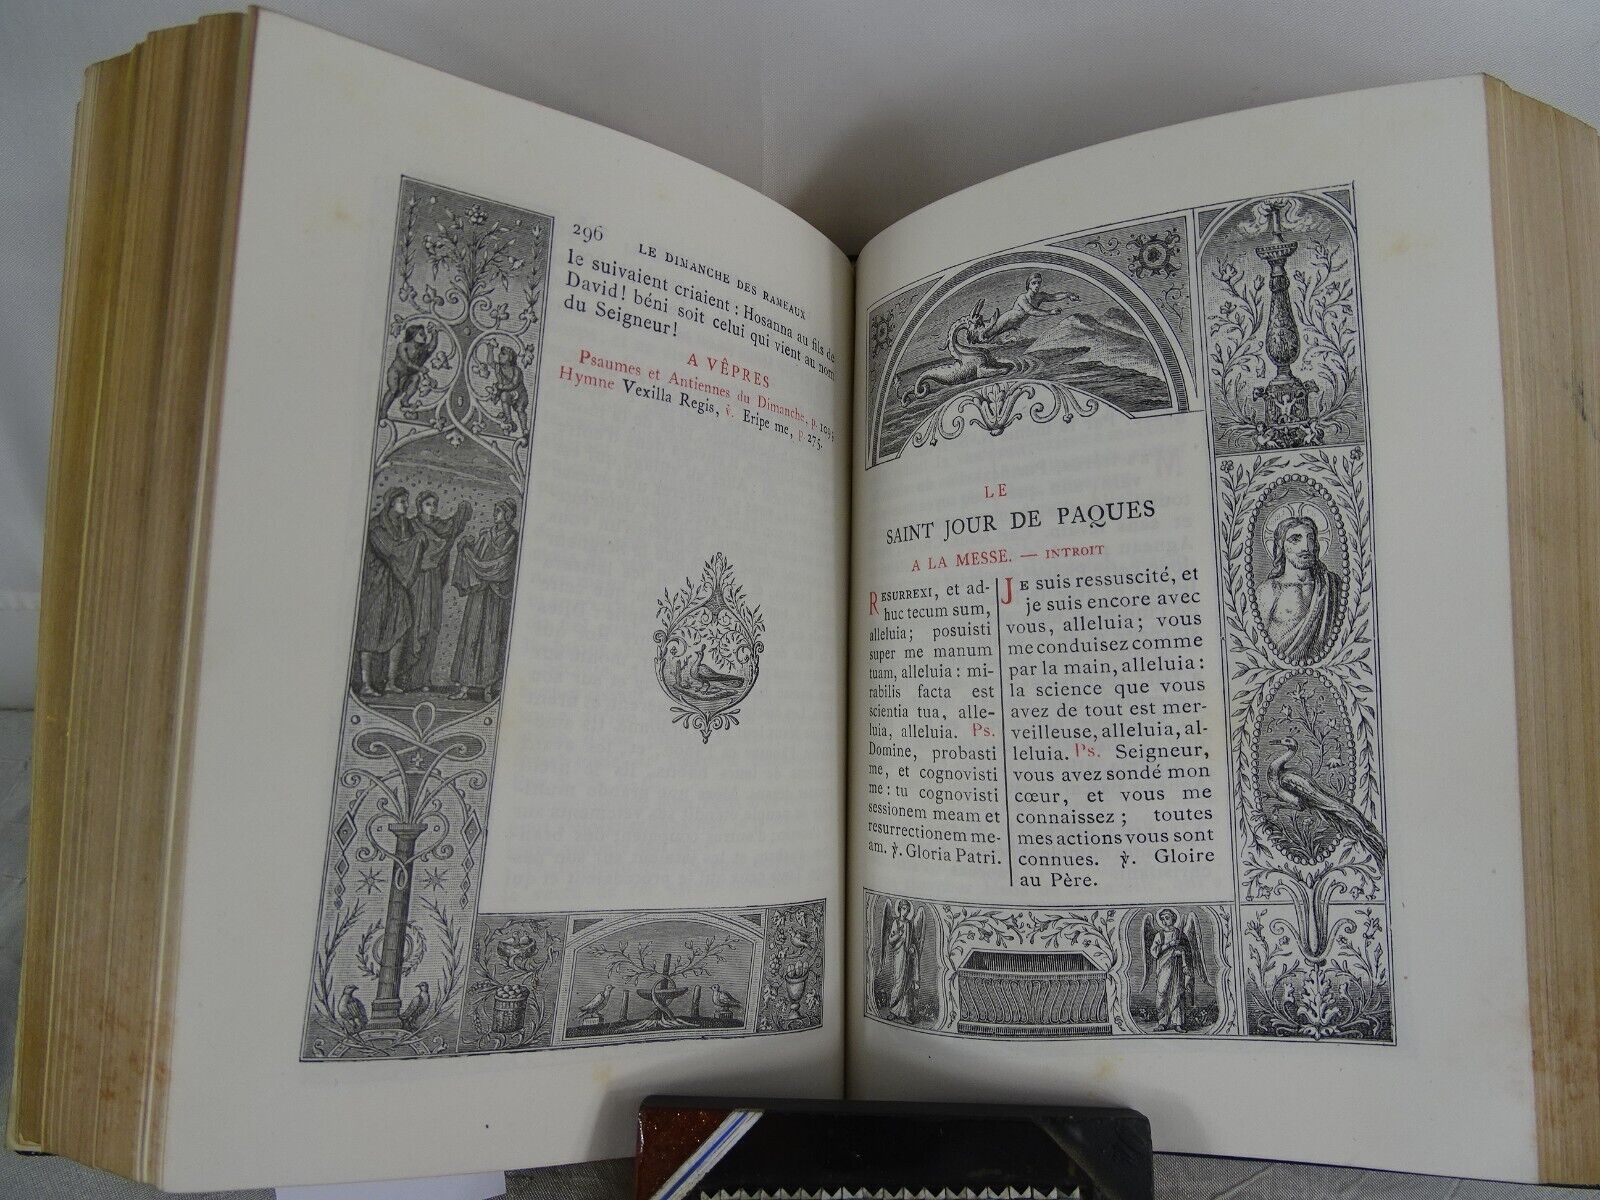 296 LE DIMANCHE DES RAMEAUX
le suivaient criaient : Hosanna au fils de
David! béni soit celui qui vient au nom
du Seigneur!
A VÊPRES
Psaumes et Antiennes du Dimanche, p.
Hymne Vexilla Regis, ℣. Eripe me, p. 275.
LE
SAINT JOUR DE PAQUES
A LA MESSE. — INTROIT
RESURREXI, et ad-
huc tecum sum,
alleluia; posuisti
super me manum
tuam, alleluia : mi-
rabilis facta est
scientia tua, alle-
luia, alleluia. Ps.
Domine, probasti
me, et cognovisti
me : tu cognovisti
sessionem meam et
resurrectionem me-
am. ℣. Gloria Patri.
JE suis ressuscité, et
je suis encore avec
vous, alleluia; vous
me conduisez comme
par la main, alleluia :
la science que vous
avez de tout est mer-
veilleuse, alleluia, al-
leluia. Ps. Seigneur,
vous avez sondé mon
cœur, et vous me
connaissez; toutes
mes actions vous sont
connues. ℣. Gloire
au Père.